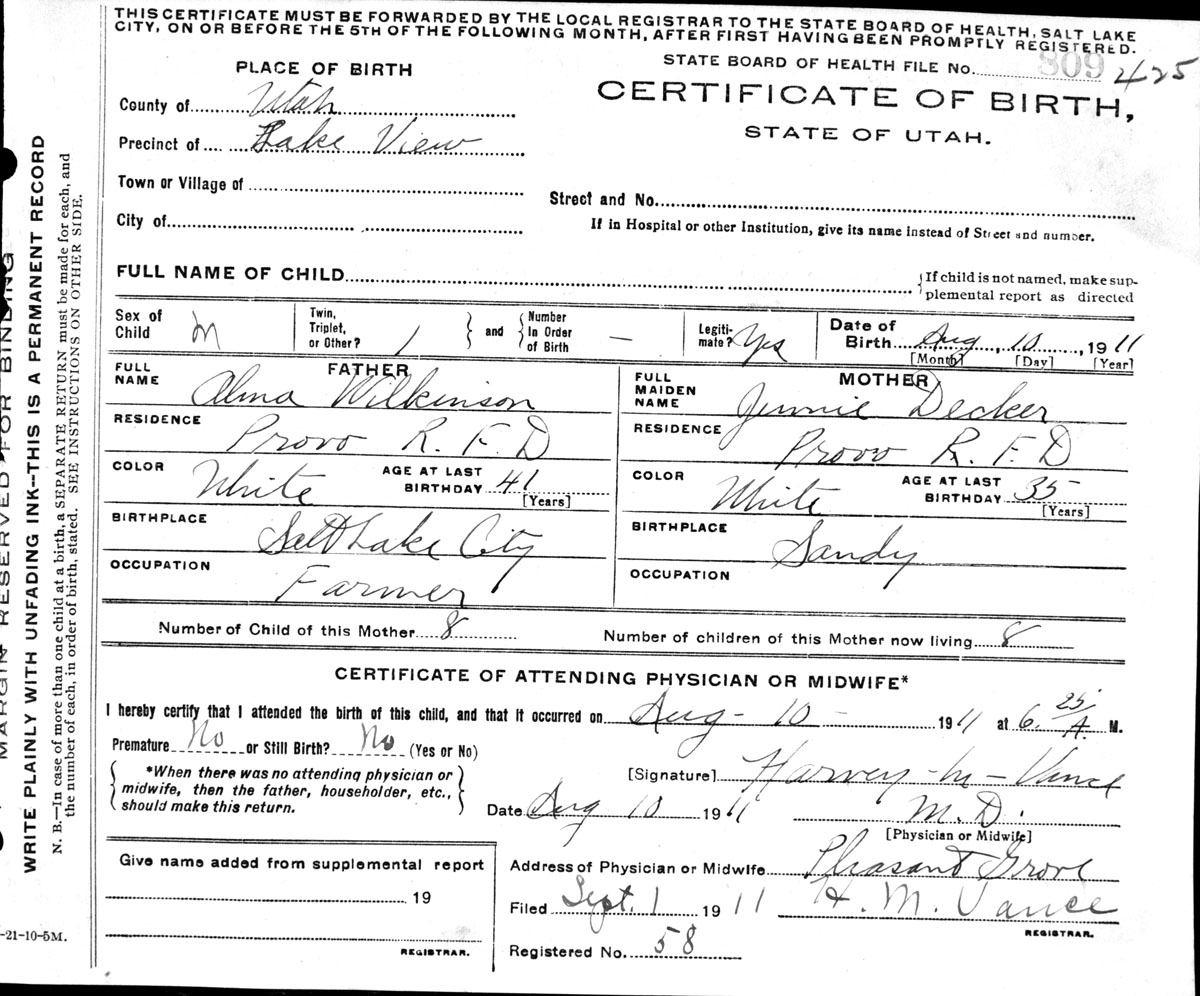 THIS CERTIFICATE MUST BE FORWARDED BY THE LOCAL REGISTRAR TO THE STATE BOARD OF HEALTH, SALT LAKE
CITY, ON OR BEFORE THE 5TH OF THE FOLLOWING MONTH, AFTER FIRST HAVING BEEN PROMPTLY REGISTERED.
STATE BOARD OF HEALTH FILE No. 809 425
PLACE OF BIRTH
CERTIFICATE OF BIRTH,
STATE OF UTAH.
County of Utah
Precinct of Lake View
Town or Village of
Street and No.
City of
If in Hospital or other Institution, give its name instead of Street and number.
FULL NAME OF CHILD
{If child is not named, make sup-
plemental report as directed
Sex of Child M
Twin, Triplet, or Other? 1
and
Number In Order of Birth —
Legiti-mate? Yes
Date of Birth Aug, 10, 1911
[Month] [Day] [Year]
FATHER
FULL NAME Alma Wilkinson
RESIDENCE Provo R. F. D
COLOR White AGE AT LAST BIRTHDAY 41
[Years]
BIRTHPLACE Salt Lake City
OCCUPATION Farmer
MOTHER
FULL MAIDEN NAME Jennie Decker
RESIDENCE Provo R. F. D
COLOR White AGE AT LAST BIRTHDAY 35
[Years]
BIRTHPLACE Sandy
OCCUPATION
Number of Child of this Mother 8 Number of children of this Mother now living 8
CERTIFICATE OF ATTENDING PHYSICIAN OR MIDWIFE*
I hereby certify that I attended the birth of this child, and that it occurred on Aug - 10 - 1911 at 6.25 A. M.
Premature No or Still Birth? No (Yes or No)
{*When there was no attending physician or
midwife, then the father, householder, etc.,
should make this return.}
[Signature] Harvey - M - Vance
Date Aug 10 1911 M. D.
[Physician or Midwife]
Address of Physician or Midwife Pleasant Grove
Filed Sept. 1 1911 H. M. Vance
REGISTRAR.
Registered No. 58
Give name added from supplemental report
19
REGISTRAR.
-21-10-5M.
MARGIN RESERVED FOR BINDING
WRITE PLAINLY WITH UNFADING INK--THIS IS A PERMANENT RECORD
N. B.—In case of more than one child at a birth, a SEPARATE RETURN must be made for each, and
the number of each, in order of birth, stated. SEE INSTRUCTIONS ON OTHER SIDE.